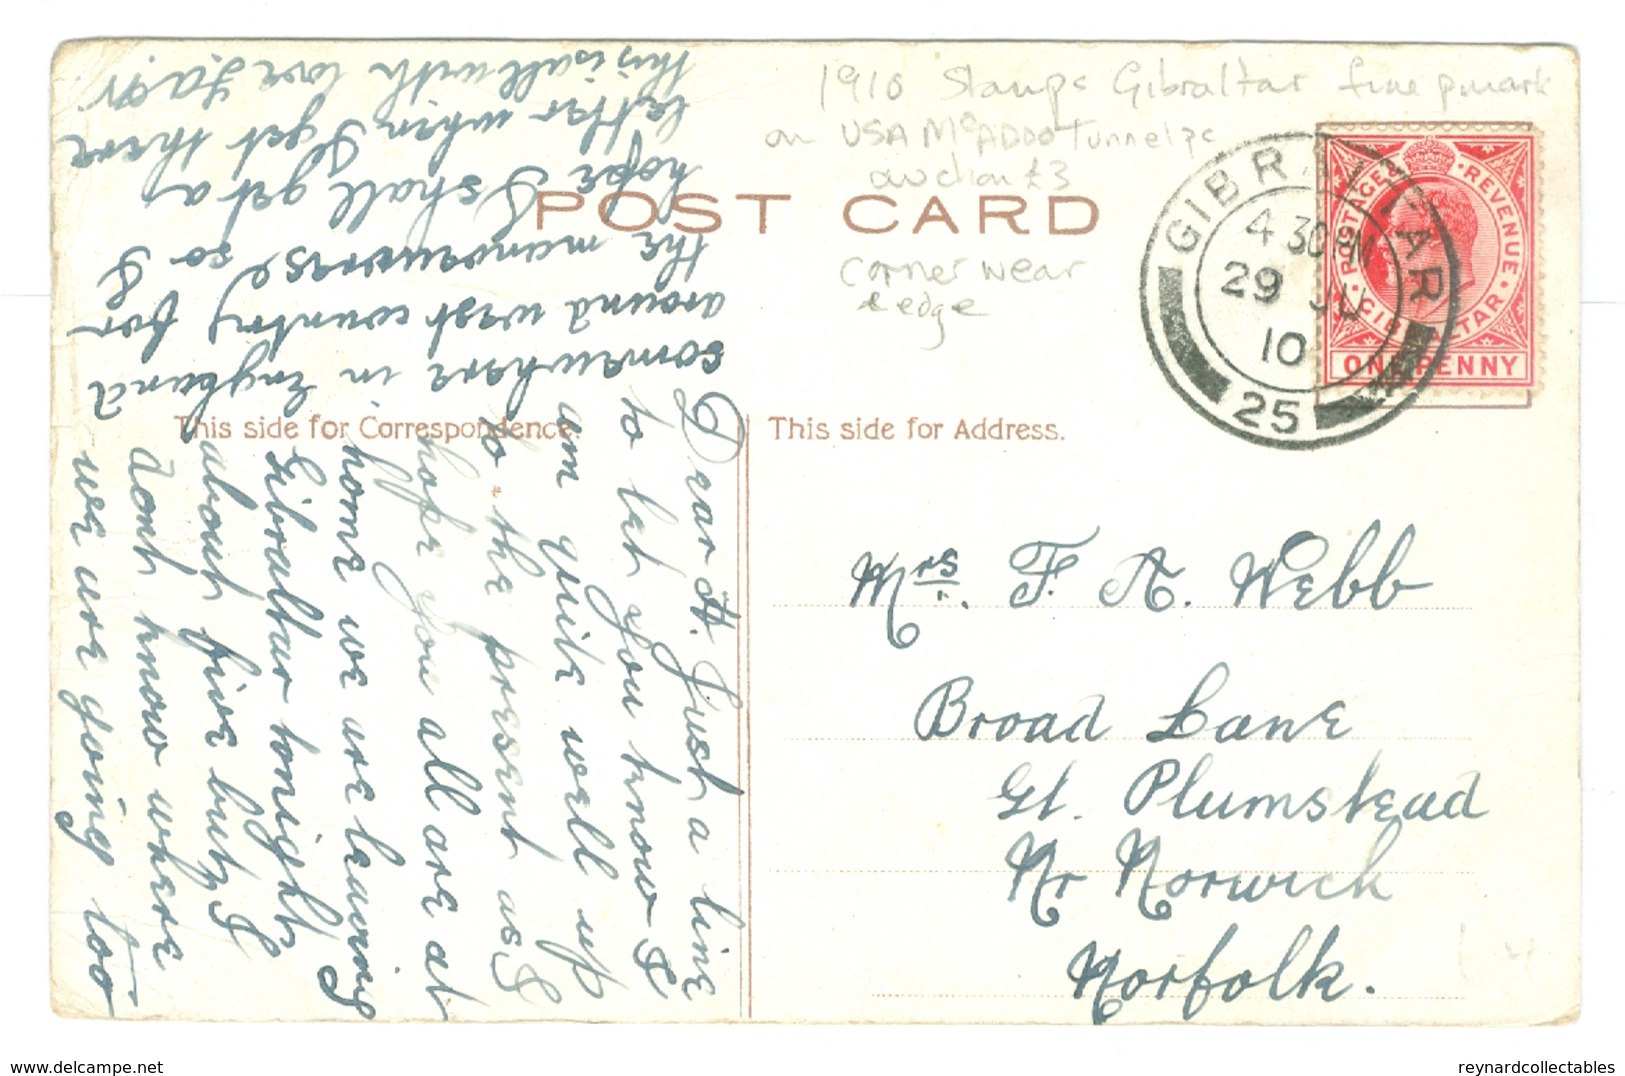 1910 Stamps Gibraltar fine pmark
on USA McADOO Tunnel pc
auction £3
corner wear
& edge
POST CARD
This side for Correspondence.
This side for Address.
GIBRALTAR
4 30 PM
29 JU
10
25
POSTAGE & REVENUE
GIBRALTAR
ONE PENNY
Mrs. F. A. Webb
Broad Lane
Gt. Plumstead
Nr Norwich
Norfolk.
Dear H. Just a line
to let you know I
am quite well up
to the present as I
hope you all are at
home we are leaving
Gibraltar tonight
about five but I
dont know where
we are going too
somewhere in England
around west country for
the manoeuvres so I
hope I shall get a
letter when I get there
this is all with love
www.delcampe.net
reynardcollectables